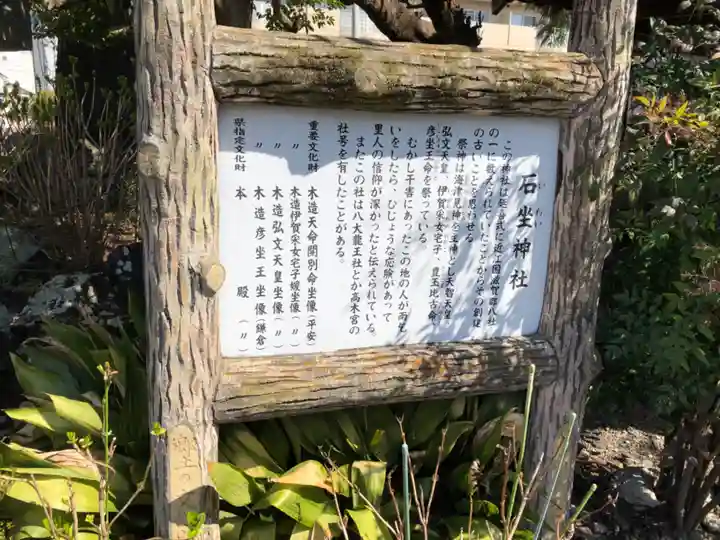 石坐神社
いわい
この神社は延喜式に近江国滋賀郡八社
の一に数えられていたことからその創建
の古いことを思わせる
祭神は海津見神を主神とし天智天皇
弘文天皇 伊賀采女宅子 豊玉比古命
彦坐王命を祭っている。
むかし干害にあったこの地の人が雨乞
いをしたら、ひじょうな応験があって
里人の信仰が深かったと伝えられている。
またこの社は八大龍王社とか高木宮の
社号を有したことがある。
重要文化財 木造天命開別命坐像(平安)
〃 木造伊賀采女宅子媛坐像(〃)
〃 木造弘文天皇坐像(〃)
〃 木造彦坐王坐像(鎌倉)
県指定文化財 本殿(〃)